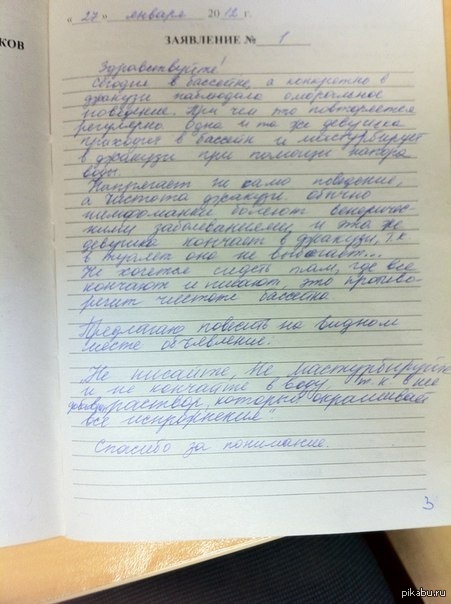 КОВ
« 27 » января 20 12 г.
ЗАЯВЛЕНИЕ № 1
Здравствуйте!
Сегодня в бассейне, а конкретно в
джакузи наблюдала аморальное
поведение. При чем это повторяется
регулярно. Одна и та же девушка
приходит в бассейн и мастурбирует
в джакузи при помощи напора
воды.
Напрягает не само поведение,
а чистота джакузи. Обычно
нимфоманки болеют венеричес-
кими заболеваниями, и эта же
девушка кончает в джакузи, т.к
в туалет она не выходит...
Не хочется сидеть там, где все
кончают и писают, это противо-
речит чистоте бассейна.
Предлагаю повесить на видном
месте объявление:
"Не писайте, Не мастурбируйте
и не кончайте в воду т.к в нее
добавлен раствор, который окрашивает
все испражнения".
Спасибо за понимание.
3
pikabu.ru